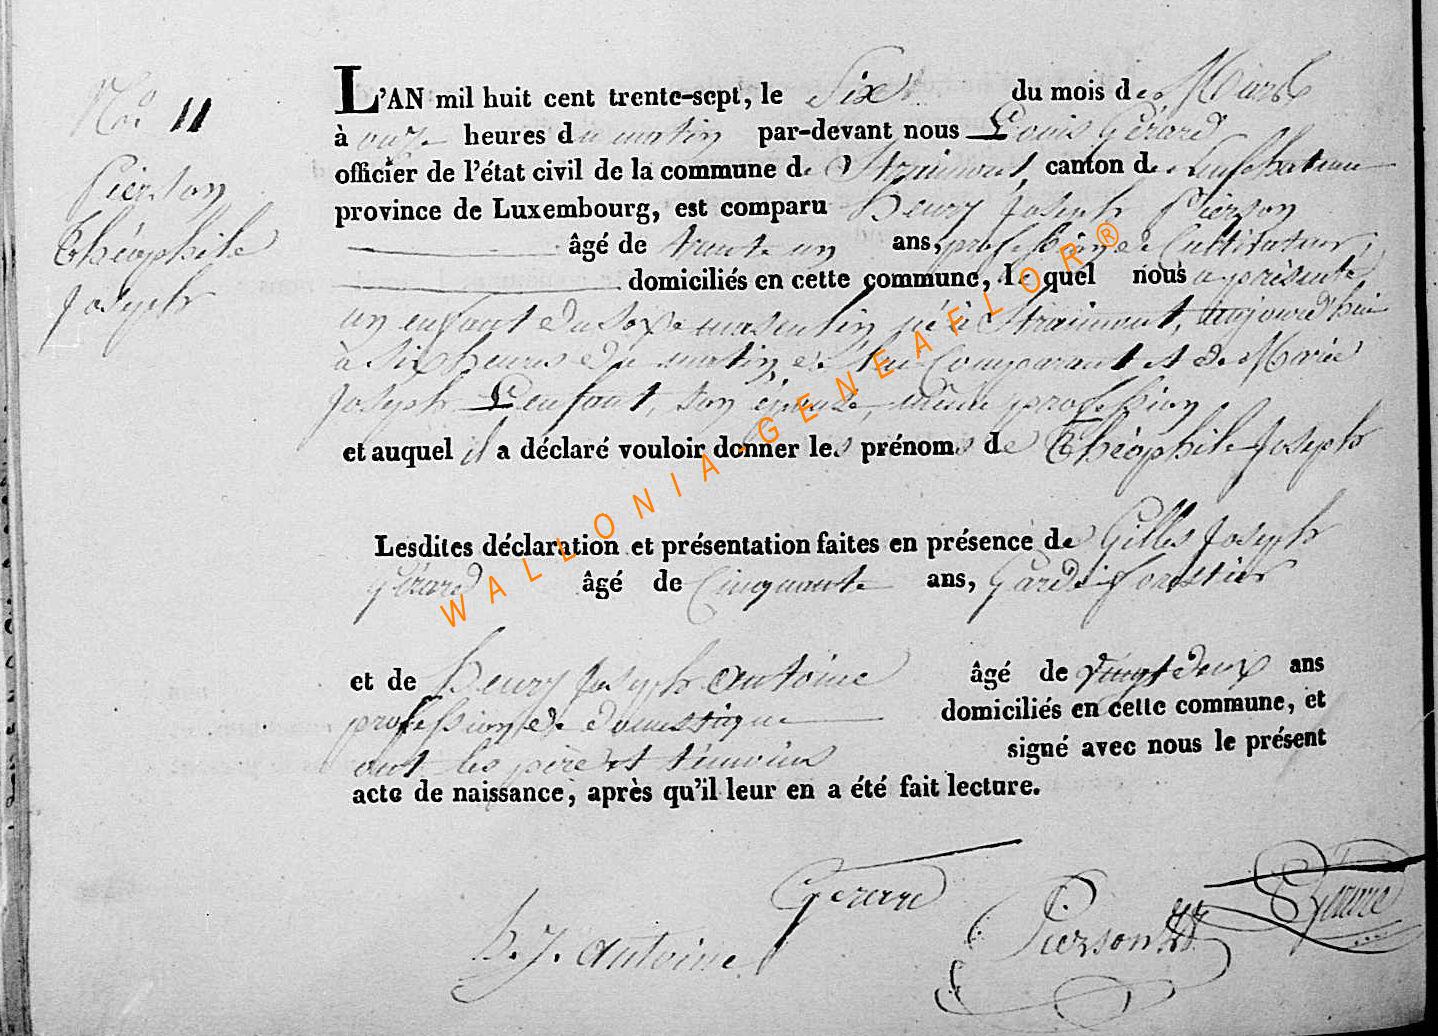 No. 11
Pierson
Théophile
Joseph
L'AN mil huit cent trente-sept, le Six du mois de Mars
à onze heures du matin par-devant nous Louis Gérard
officier de l'état civil de la commune de Straimont, canton de Neufchateau
province de Luxembourg, est comparu Henry Joseph Pierson
âgé de trente un ans, profession de Cultivateur,
domiciliés en cette commune, lequel nous a présenté
un enfant du Sexe masculin né à Straimont, aujourd'hui
à Six heures du matin de lui Comparant et de Marie
Joseph Lenfant, son épouse, même profession
et auquel il a déclaré vouloir donner les prénoms de Théophile Joseph
Lesdites déclaration et présentation faites en présence de Gilles Joseph
Gérard âgé de Cinquante ans, Garde forestier
et de Henry Joseph Antoine âgé de vingt deux ans
profession de domestique domiciliés en cette commune, et
ont les père et témoins signé avec nous le présent
acte de naissance, après qu'il leur en a été fait lecture.
Gerard
H. J. Antoine
Pierson
Gerard
WALLONIA-GENEAFLOR®